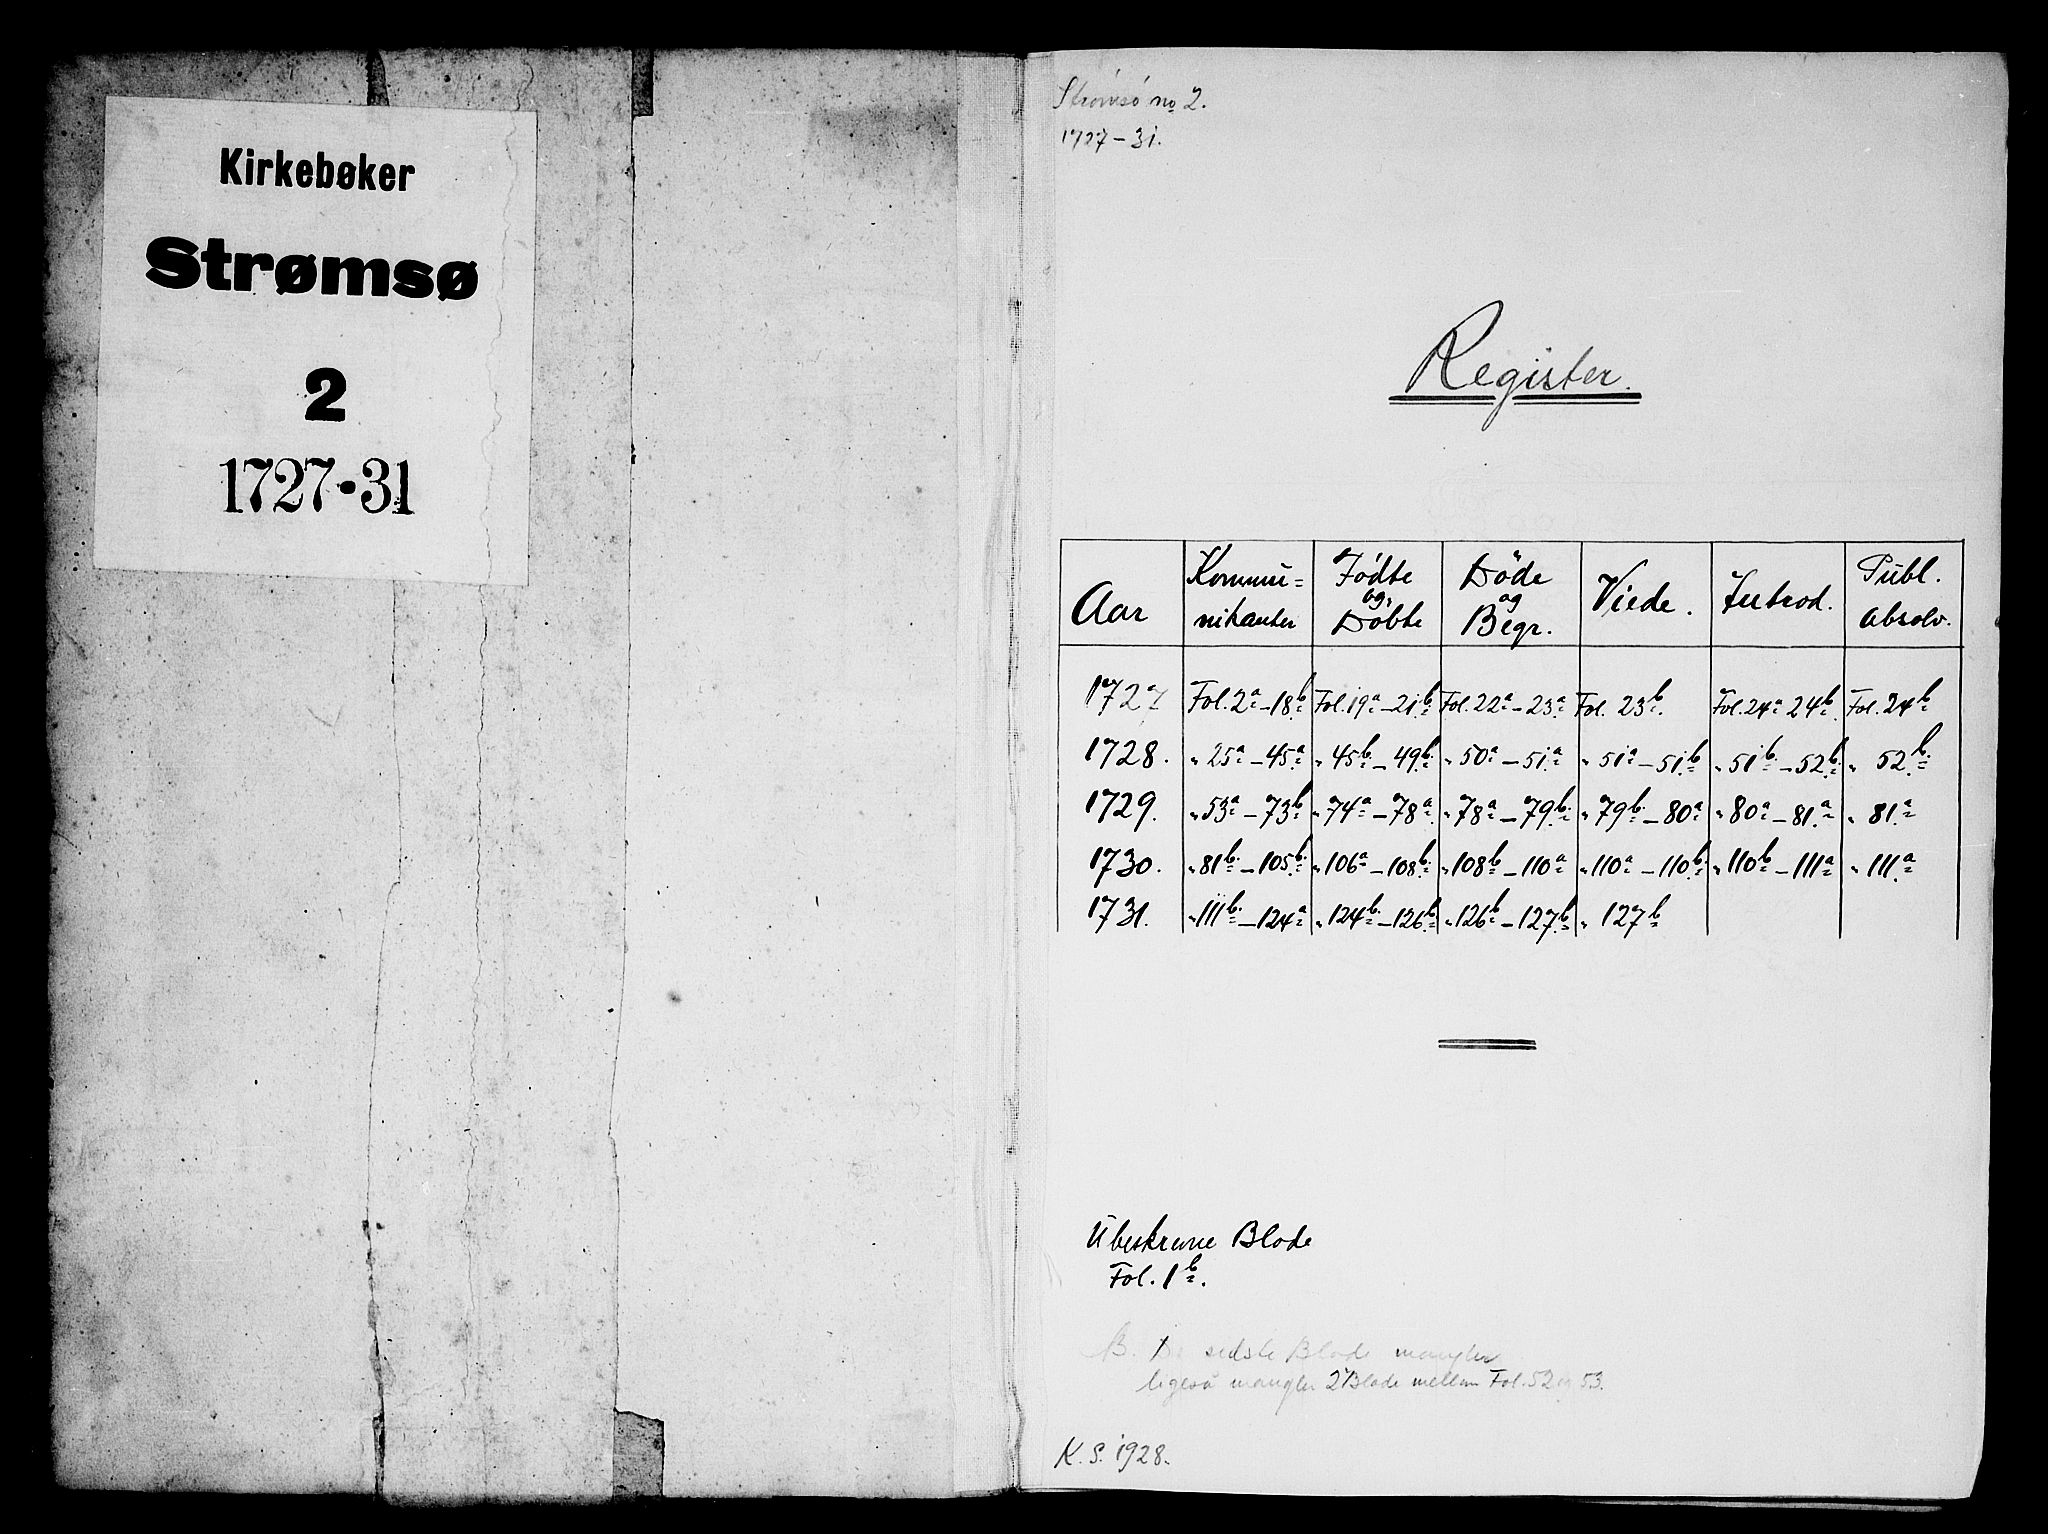 Kirkebøker
Strømsø
2
1727-31
Strömsö no 2.
1727-31.
Register.
Aar Kommu= Födte Döde Viede. Introd. Publ.
nikanter og Döbte og Begr. absolv.
1727 Fol. 2a-18b. Fol. 19a-21b. Fol. 22a-23a Fol. 23b. Fol. 24a-24b. Fol. 24b
1728. " 25a-45a " 45b-49b. " 50a-51a " 51a-51b " 51b-52b. " 52b.
1729. " 53a-73b " 74a-78a " 78a-79b. " 79b-80a " 80a-81a " 81a
1730. " 81b-105b. " 106a-108b. " 108b-110a " 110a-110b. " 110b-111a " 111a
1731. " 111b-124a " 124b-126b " 126b-127b " 127b
Ubeskrevne Blade
Fol. 1b.
B. De sidste Blade mangler
ligeså mangler 2 Blade mellem Fol. 52 og 53.
K.S. 1928.